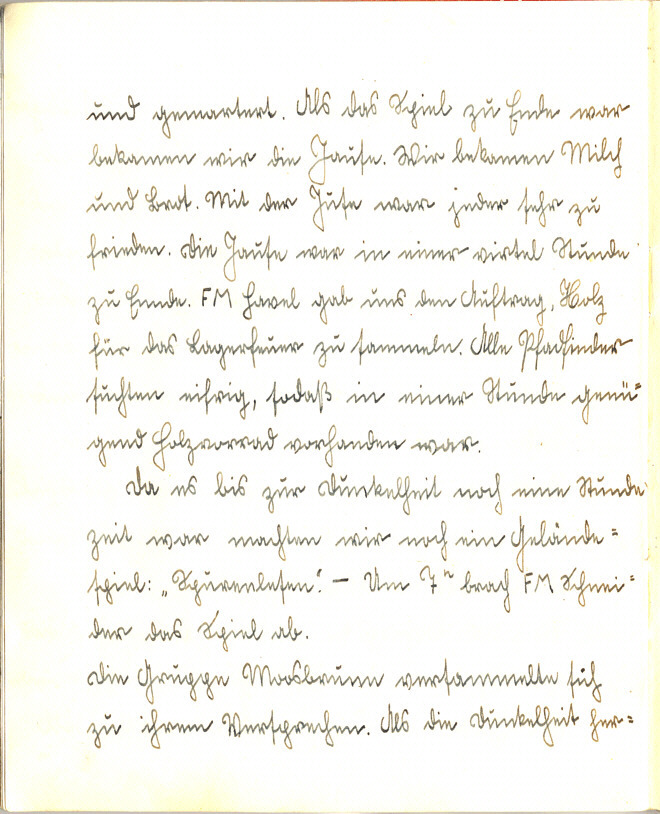 und gemartert. Als das Spiel zu Ende war
bekamen wir die Jause. Wir bekamen Milch
und Brot. Mit der Juse war jeder sehr zu
frieden. Die Jause war in einer virtel Stunde
zu Ennde. FM Havel gab uns den Auftrag, Holz
für das Lagerfeuer zu sammeln. Alle Pfadfinder
suchten eifrig, sodaß in einer Stunde genü=
gend Holzvorrad vorhanden war.
Da es bis zur Dunkelheit noch eine Stunde
zeit war machten wir noch ein Gelände=
spiel: „Spurenlesen“. – Um 7ʰ brach FM Schnei=
der das Spiel ab.
Die Gruppe Moosbrunn versammelte sich
zu ihrem Versprechen. Als die Dunkelheit her=